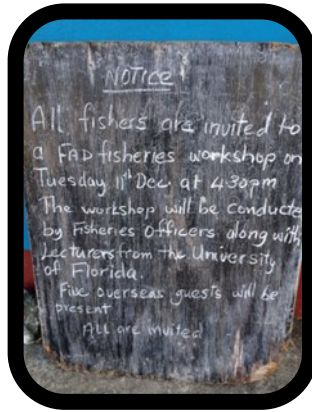 NOTICE
All fishers are invited to
a FAD fisheries workshop on
Tuesday 11th Dec at 430pm
The workshop will be conducte
by Fisheries Officers along with
Lecturers from the University
of Florida.
Five overseas guests will be
present
All are invited